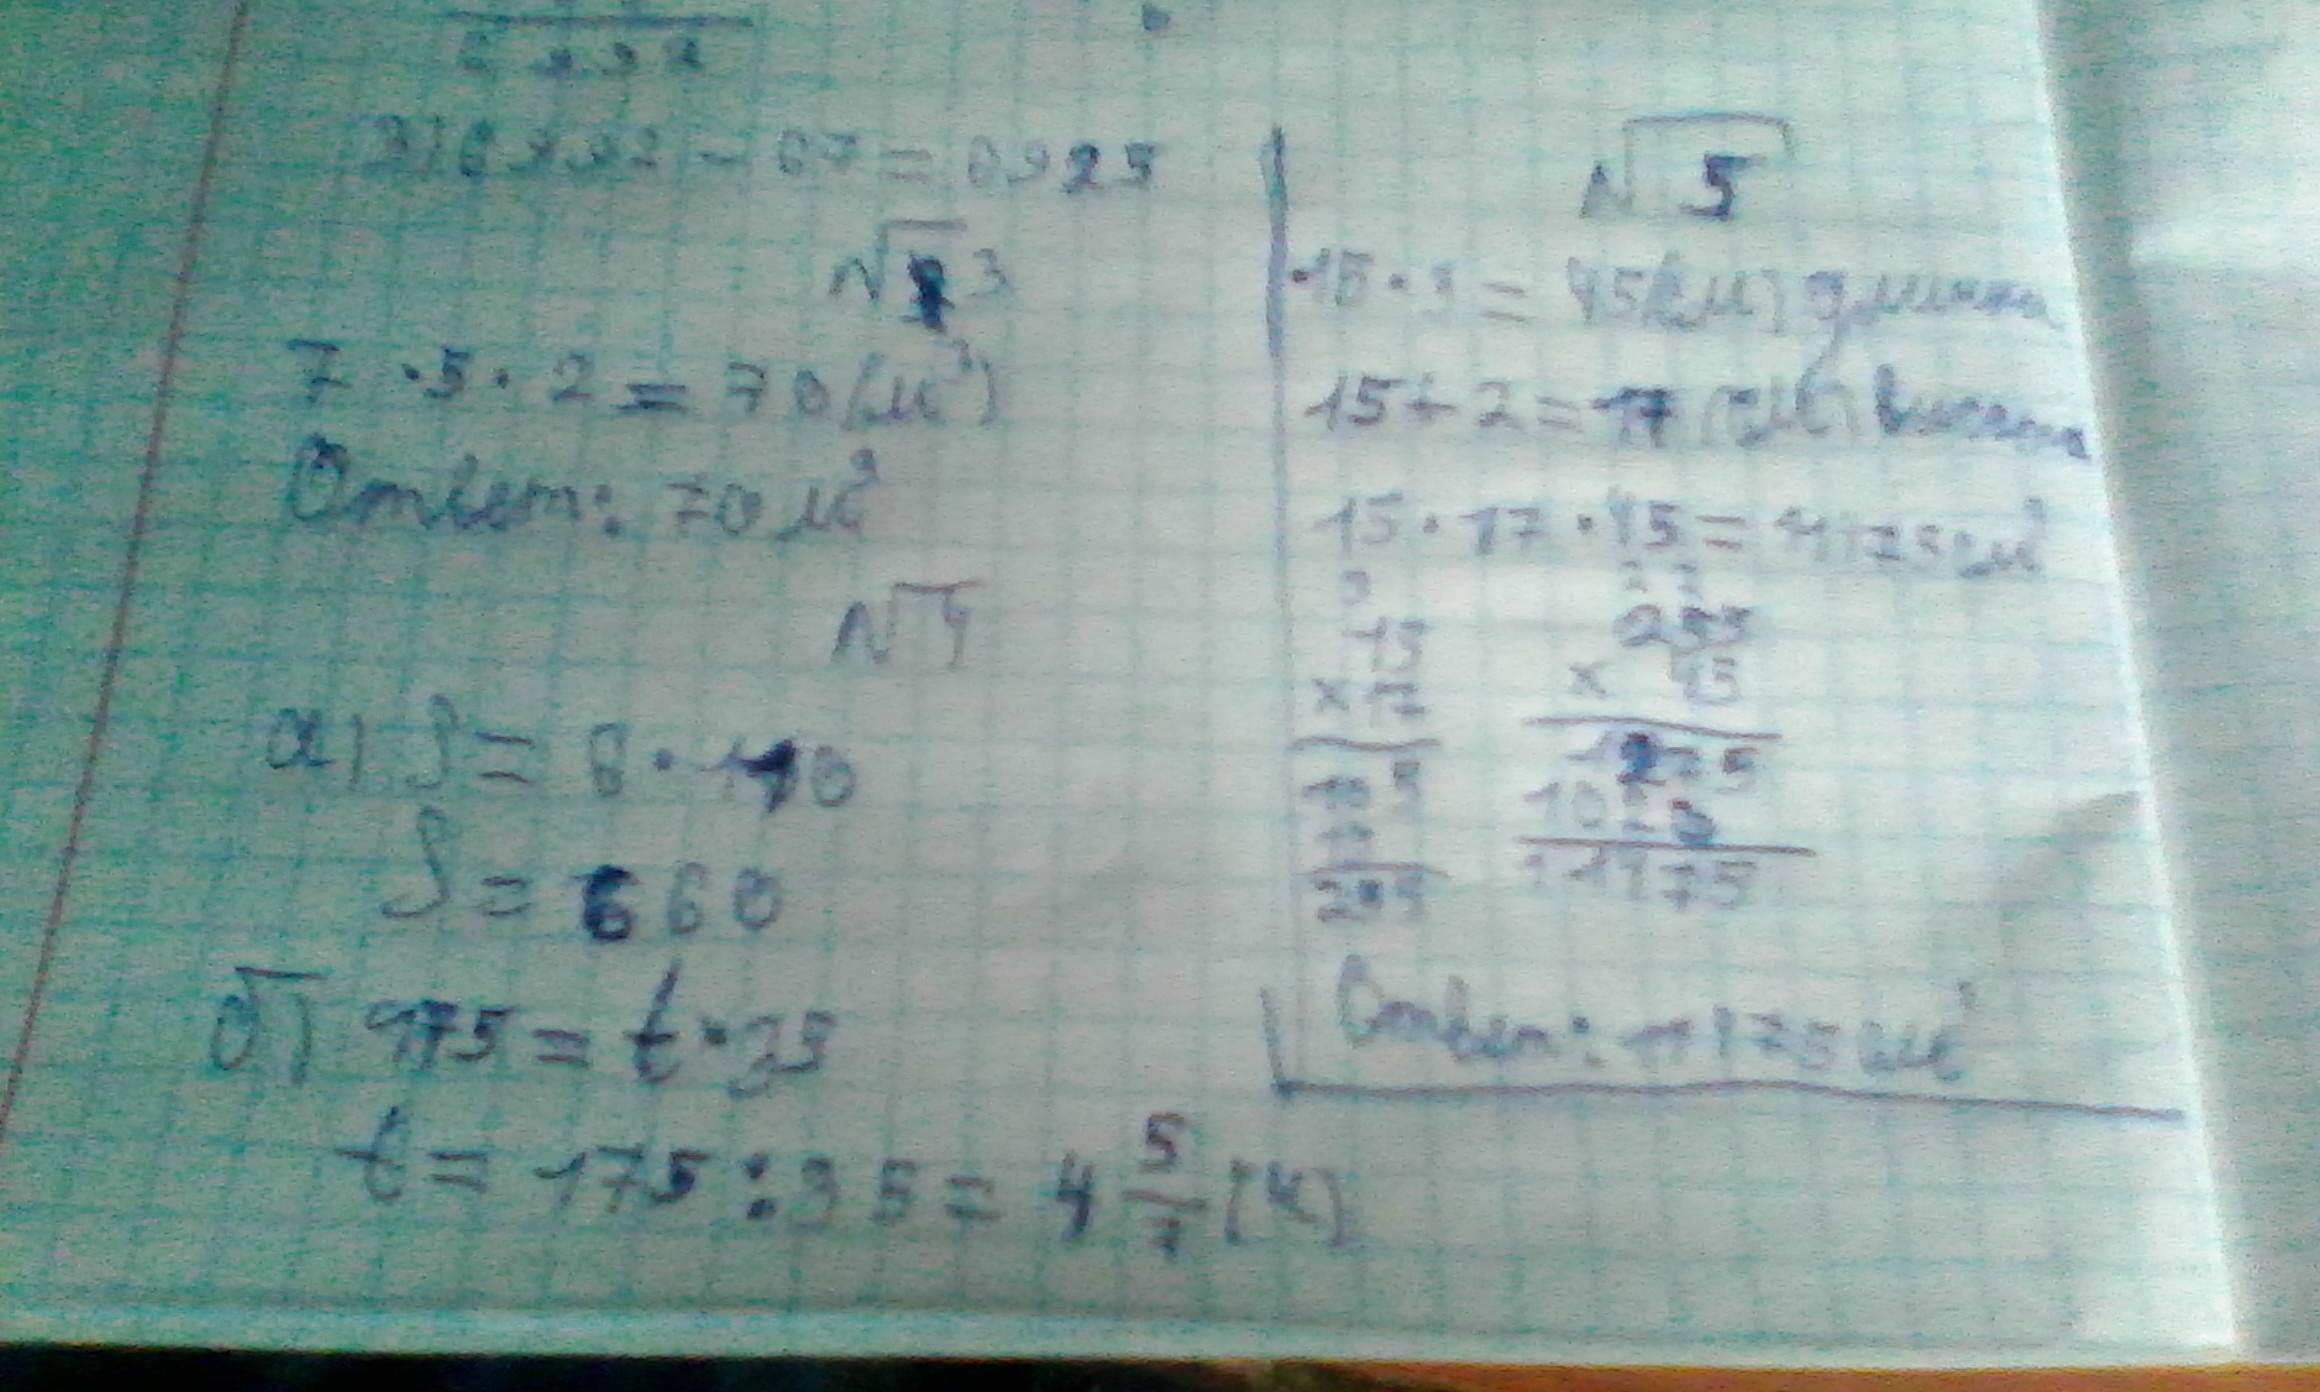 3) 6992 - 67 = 6925
√3
7 · 5 · 2 = 70 (м³)
Ответ: 70 м³
√4
а) S = 6 · 110
S = 660
б) 175 = t · 35
t = 175 : 35 = 4 5/7 (ч)
√5
15 · 3 = 45 (см) длина
15 + 2 = 17 (см) высота
15 · 17 · 45 = 11475 см³
3
15
× 17
105
15
255
2 2
255
× 45
1275
1020
11475
Ответ: 11475 см³